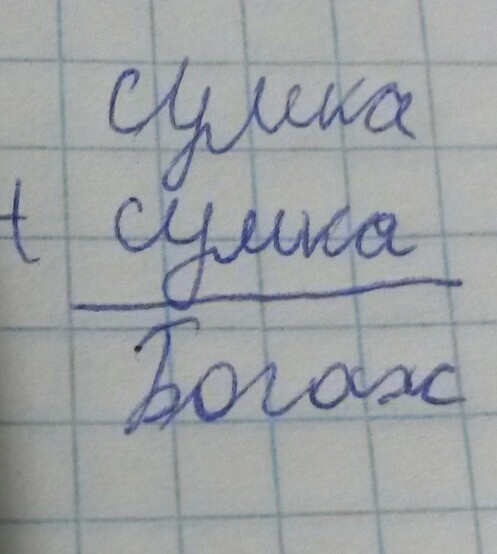 сумка
+ сумка
Богаж